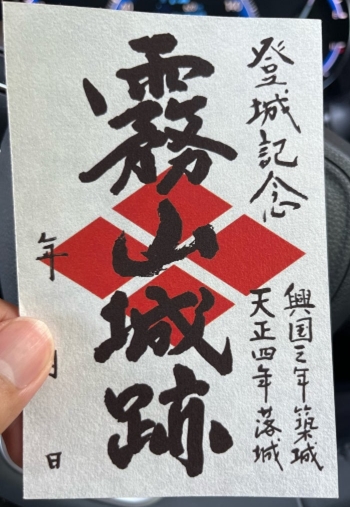 登城記念
興国三年築城
天正四年落城
霧山城跡
年
月
日